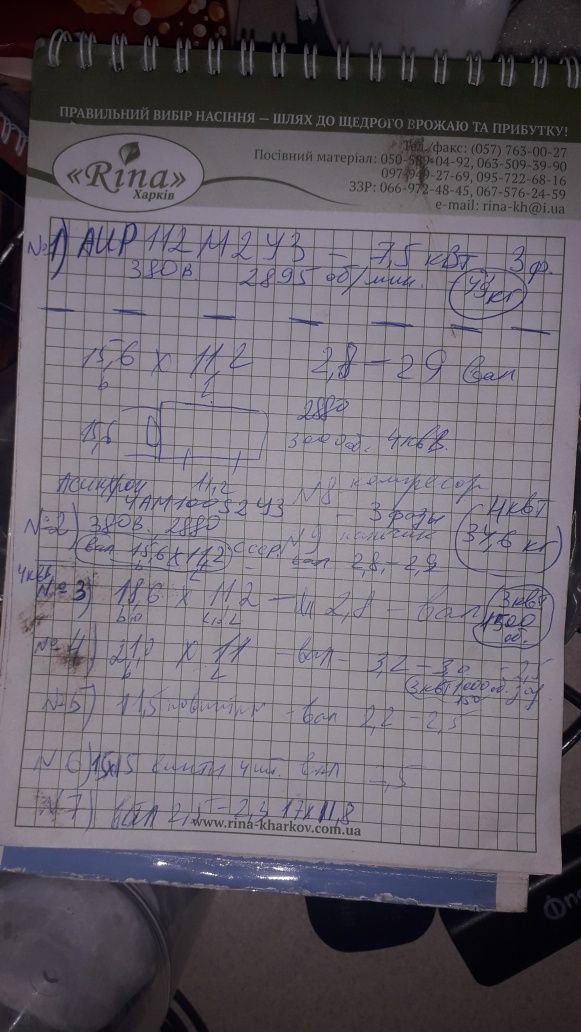 ПРАВИЛЬНИЙ ВИБІР НАСІННЯ — ШЛЯХ ДО ЩЕДРОГО ВРОЖАЮ ТА ПРИБУТКУ!
«Rina»
Харків
Тел./факс: (057) 763-00-27
Посівний матеріал: 050-589-04-92, 063-509-39-90
097-949-27-69, 095-722-68-16
ЗЗР: 066-972-48-45, 067-576-24-59
e-mail: rina-kh@i.ua
№1) АИР 112 М2 У3 – 7,5 кВт 3ф.
380в 2895 об/мин. 49кг
15,6 х 11,2 2,8 – 2,9 вал
b L
2880
15,6 3000об. 4кВ.
Асинхрон 11,2 №8 компресор
4АМ100S2У3 – 3 фазы 4кВт
№2) 380в. 2880 №9 34,6 кг
вал 15,6 х 11,2 СССР – вал 2,8 – 2,9
4кВ
№3) 18,6 х 11,2 – 2,8 – вал 3кВт
1500
об.
№4) 21,0 х 11 – вал – 3,2 – 3,0 – 2,5
b L 3кВт 1000об.
№5) 11,5 – вал 2,2 – 2,5
№6) 15х15 4шт. вал 2,5
№7) вал 2,5 – 2,4 17х11,8
www.rina-kharkov.com.ua